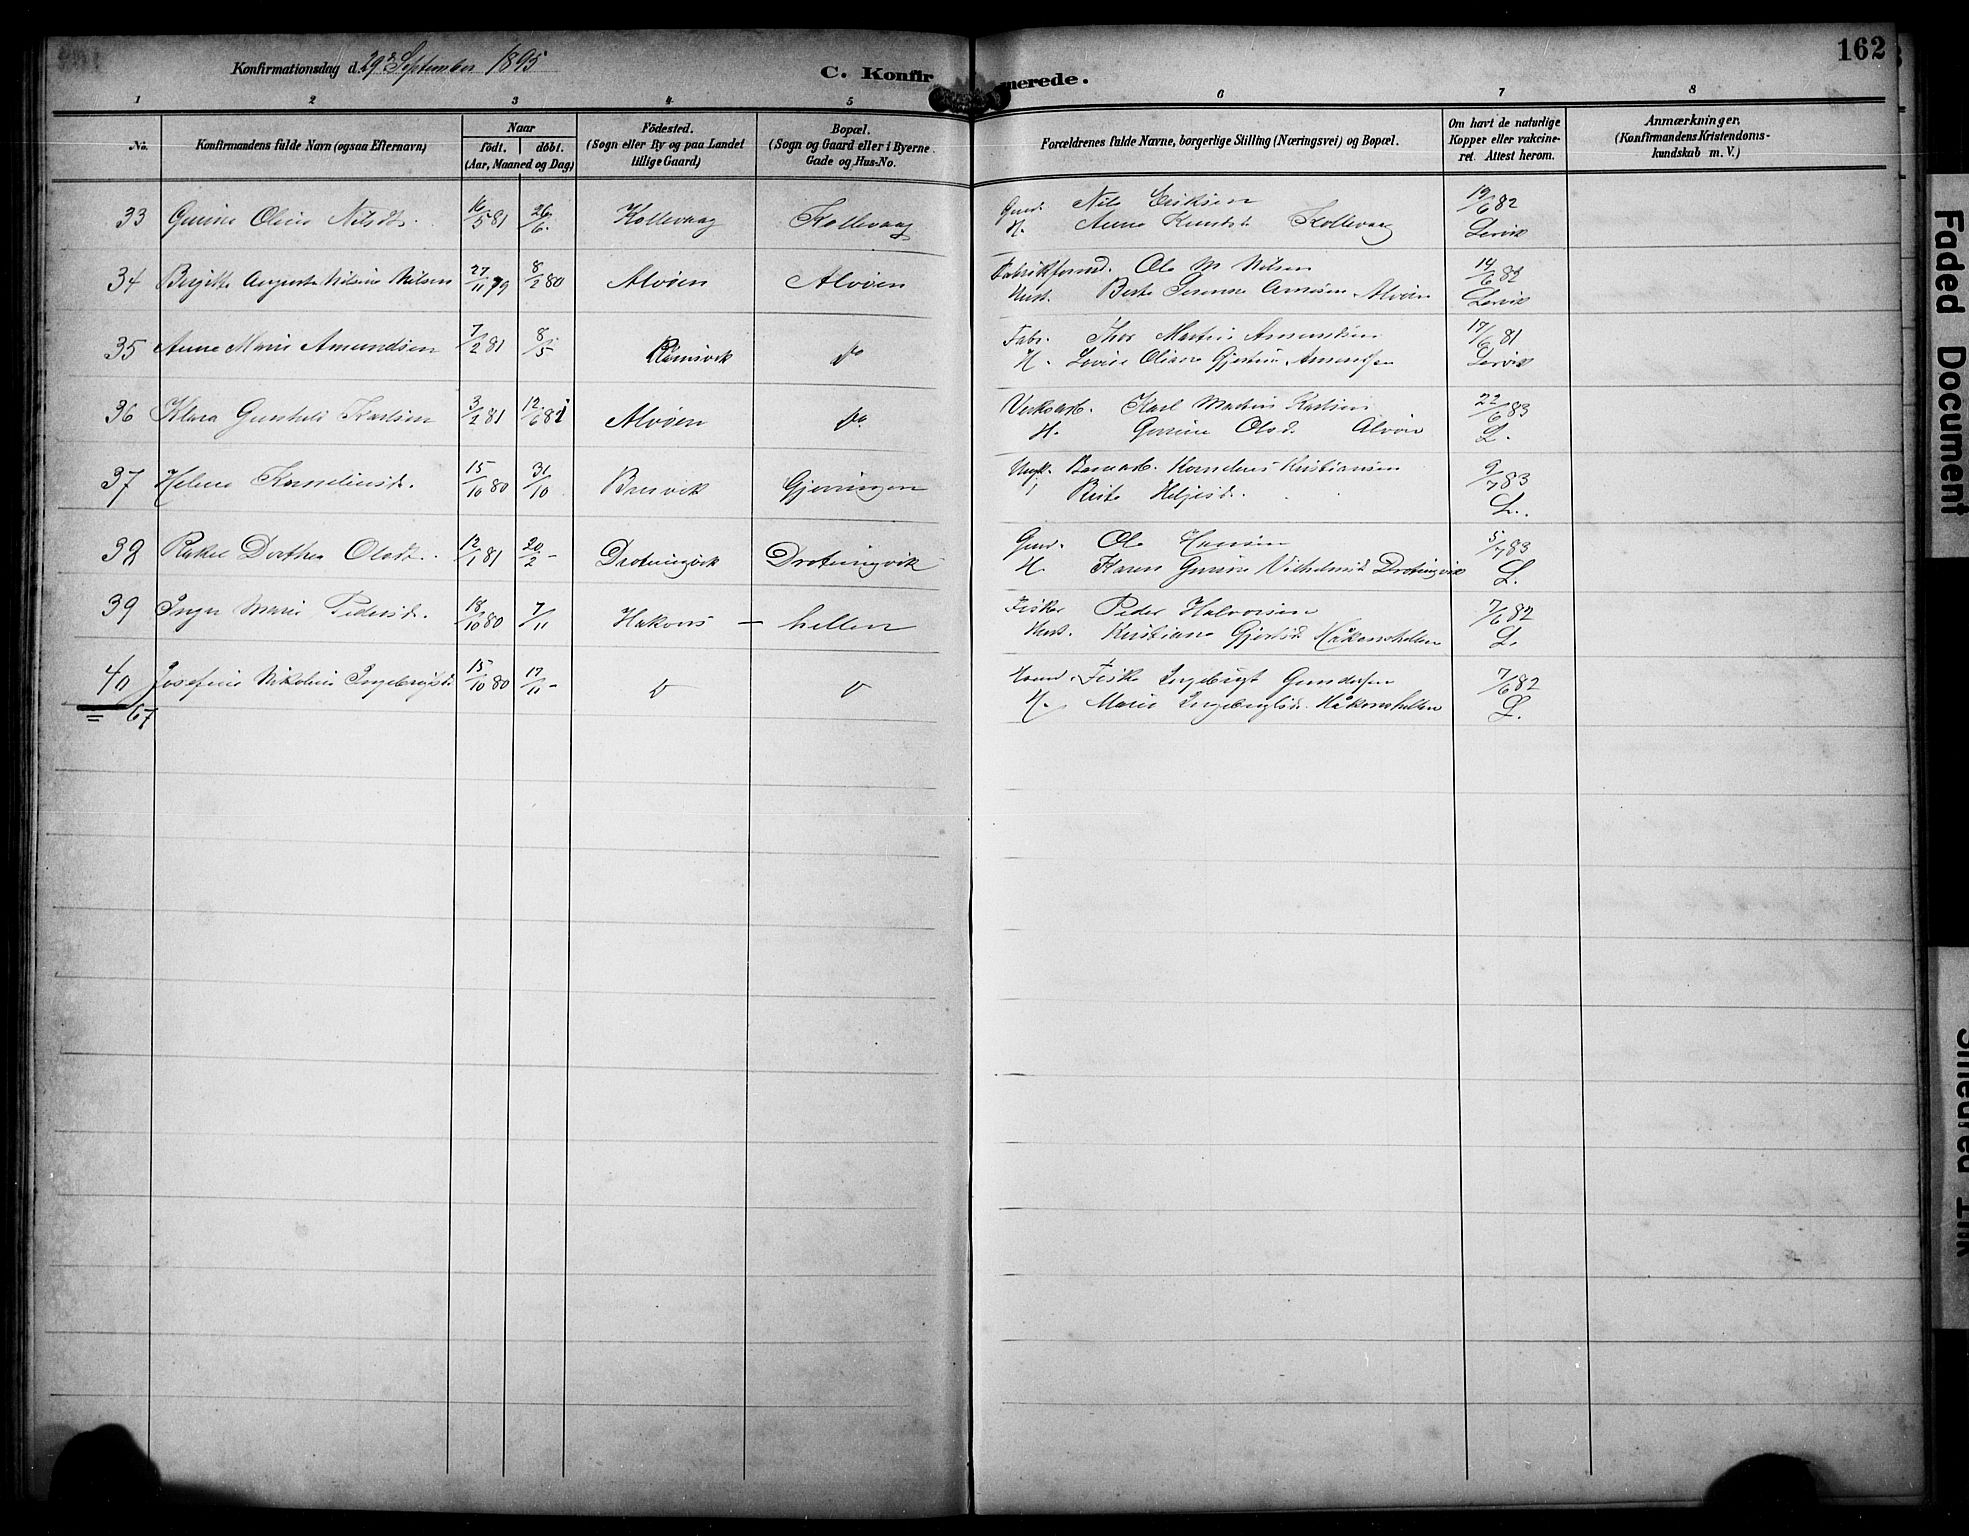 162
Konfirmationsdag d. 29de September 1895
C. Konfirmerede.
1 2 3 4 5 6 7 8
No.
Konfirmandens fulde Navn (ogsaa Efternavn)
Naar
födt. döbt.
(Aar, Maaned og Dag)
Födested.
(Sogn eller By og paa Landet
tillige Gaard)
Bopæl.
(Sogn og Gaard eller i Byerne
Gade og Hus-No.
Forældrenes fulde Navne, borgerlige Stilling (Næringsvei) og Bopæl.
Om havt de naturlige
Kopper eller vakcine-
ret. Attest herom.
Anmærkninger,
(Konfirmandens Kristendoms-
kundskab m. V.)
33 Gurine Oline Nilsdt. 16/5 81 26/6. Kollevaag Kollevaag Gmd. Nils Eriksen 19/6 82
H. Anna Knutsd. Kollevaag Lervik
34 Birgitte Augusta Nilsine Nilsen 27/11 79 8/2 80 Alvöen Alvöen Fabrikformd. Ole M Nilsen 14/6 82
Hust. Berte Serene Arnesen Alvöen Lervik
35 Anne Marie Amundsen 7/2 81 8/5 do Fabr. Thor Martin Amundsen 17/6 81
H. Lovise Oliane Gjertine Amundsen Lervik
36 Klara Gunhild Karlsen 3/2 81 12/6 81 Alvöen do. Verksarb. Karl Martin Karlsen 22/6 83
H. Gurine Olsd. Alvöen L.
37 Helene Korneliusd. 15/10 80 31/10 Brusvik Gjeveringen Ungk. Kornelius Kristiansen 9/7 83
Pi Berte Heljesd. L.
38 Rakel Dorthea Olsdt. 12/1 81 20/2 - Drotningvik Drotningvik Gmd. Ole Hansen 5/7 83
H. Karen Gurine Vilhelmsd. Drotningvik L.
39 Inger Marie Pedersd. 18/10 80 7/11 Hakons - hellen Fisker Peder Halvorsen 7/6 82
Hust. Kristiane Gjertsd. Håkonshellen L.
40 Josefine Nikoline Ingebrigtsd. 15/10 80 17/11 - Fisker Ingebrigt Gundersen 7/6 82
67 H. Marie Ingebrigtsd. Håkonshellen L.
Faded Document
Smeared Ink